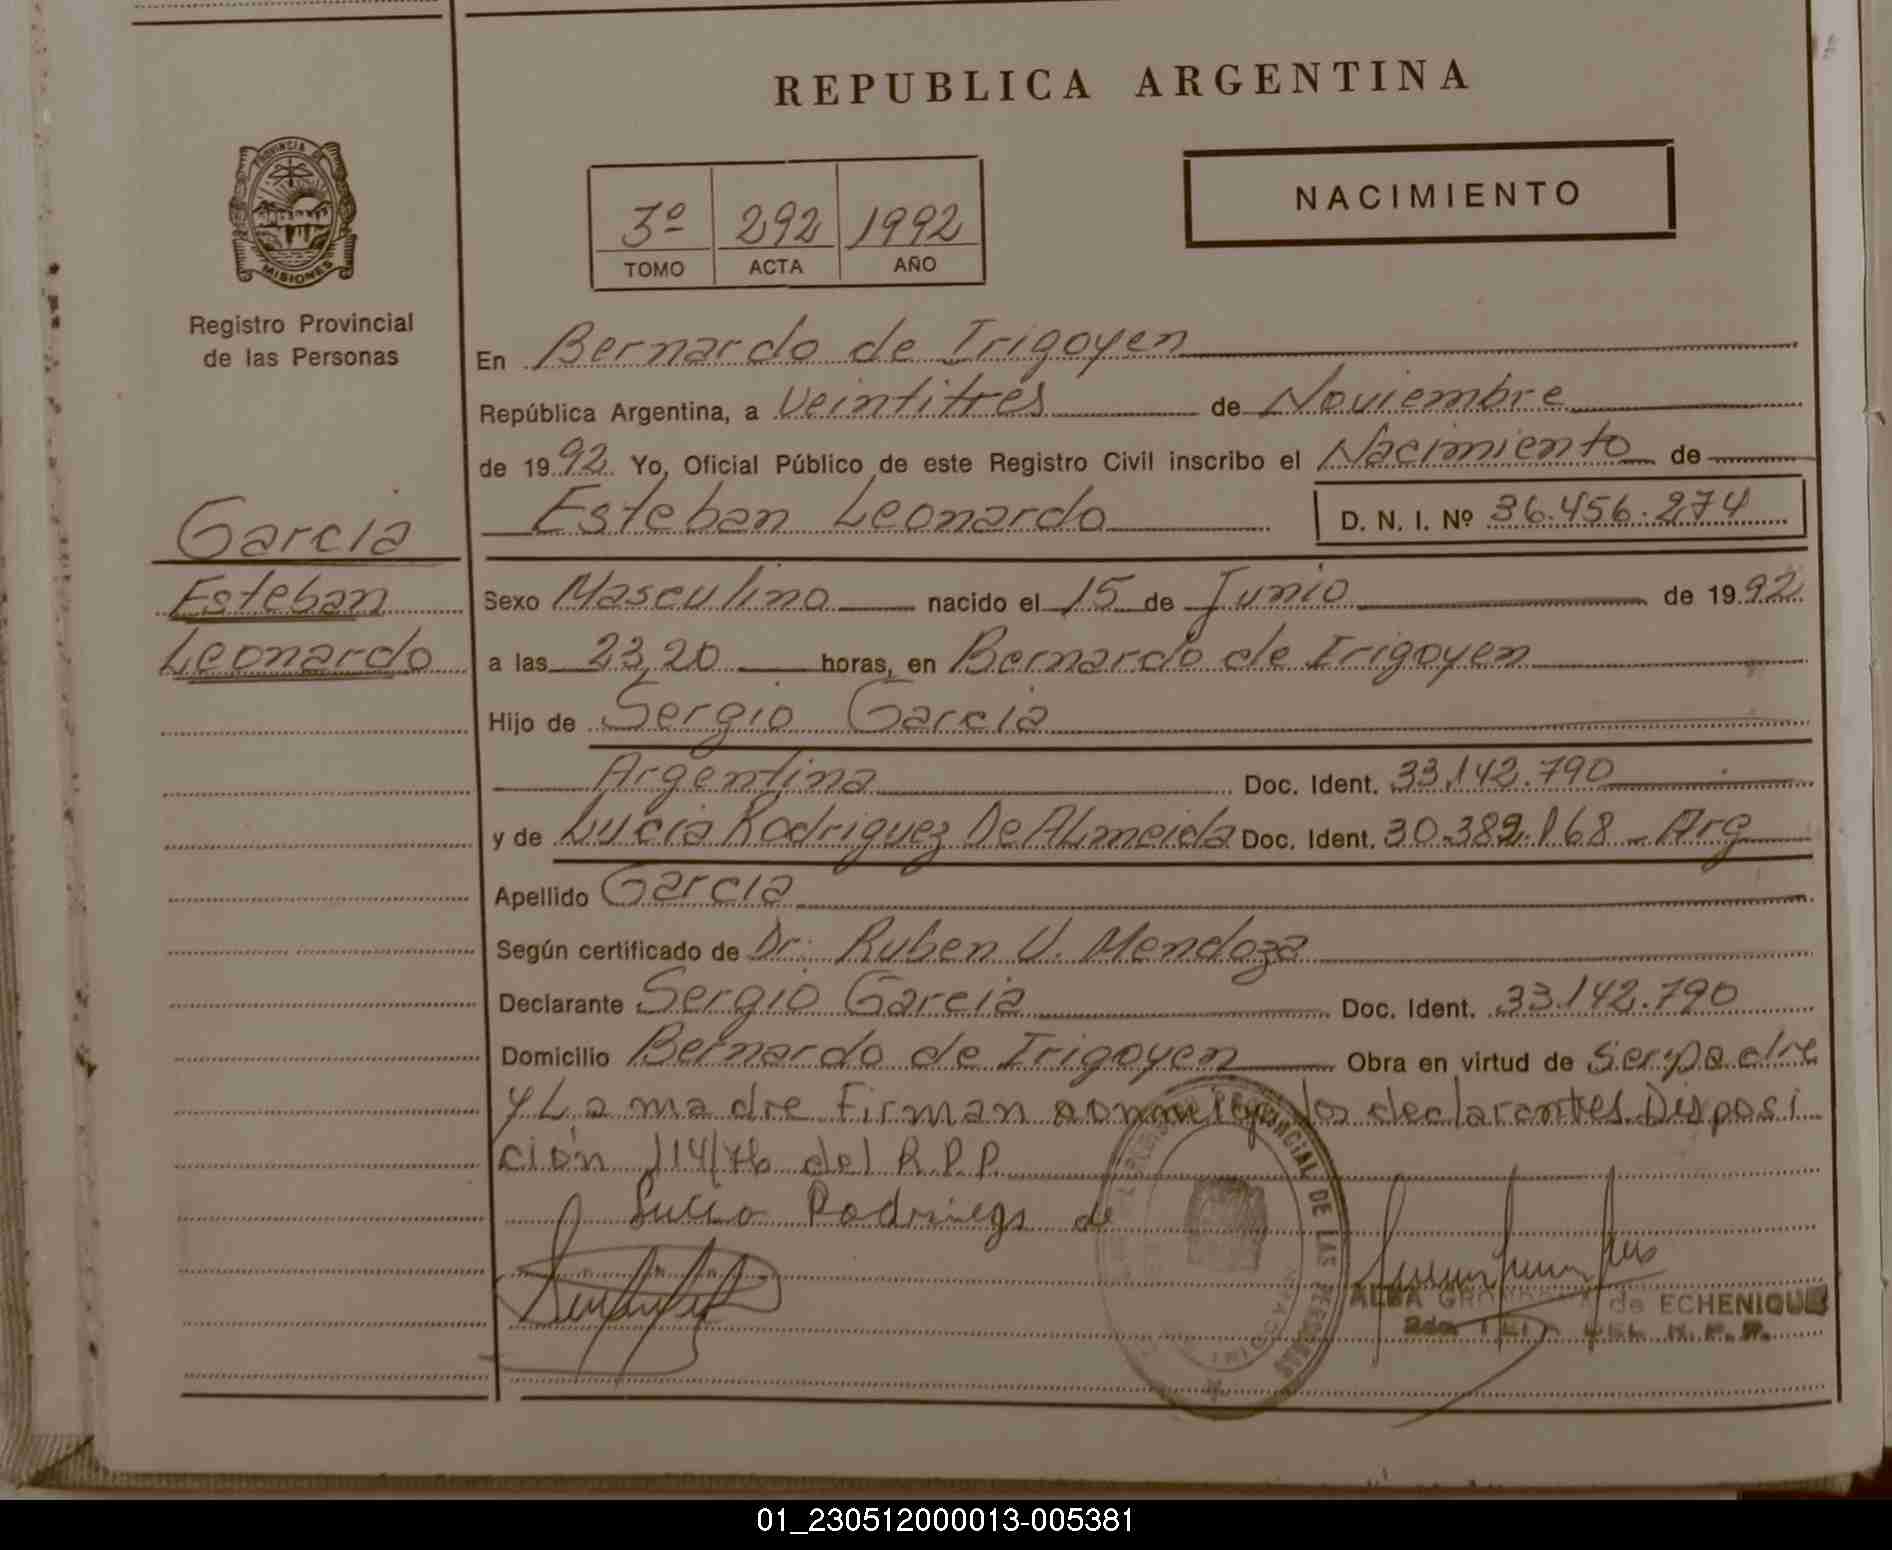 REPUBLICA ARGENTINA
PROVINCIA DE
MISIONES
Registro Provincial
de las Personas
3º 292 1992
TOMO ACTA AÑO
NACIMIENTO
En Bernardo de Irigoyen
República Argentina, a Veintitres de Noviembre
de 1992 Yo, Oficial Público de este Registro Civil inscribo el Nacimiento de
Esteban Leonardo D. N. I. Nº 36.456.274
Garcia
Esteban
Leonardo
Sexo Masculino nacido el 15 de Junio de 1992
a las 23,20 horas, en Bernardo de Irigoyen
Hijo de Sergio Garcia
Argentina Doc. Ident. 33.142.790
y de Lucia Rodriguez De ALmeida Doc. Ident. 30.382.168 - Arg
Apellido Garcia
Según certificado de Dr. Ruben V. Mendoza
Declarante Sergio Garcia Doc. Ident. 33.142.790
Domicilio Bernardo de Irigoyen Obra en virtud de Ser padre
y La madre Firman conmigo los declarantes Disposi
ción 114/76 del R.P.P.
Rodriguez de
PROVINCIAL DE LAS PERSONAS
ALBA de ECHENIQUE
DEL R. P. P.
01_230512000013-005381